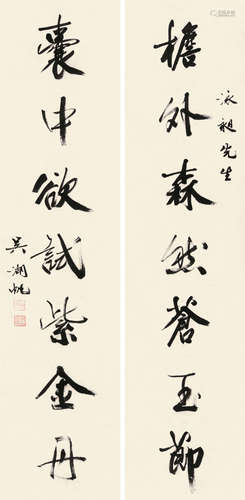 泳昶先生
檐外森然蒼玉節
囊中欲試紫金丹
吳湖帆